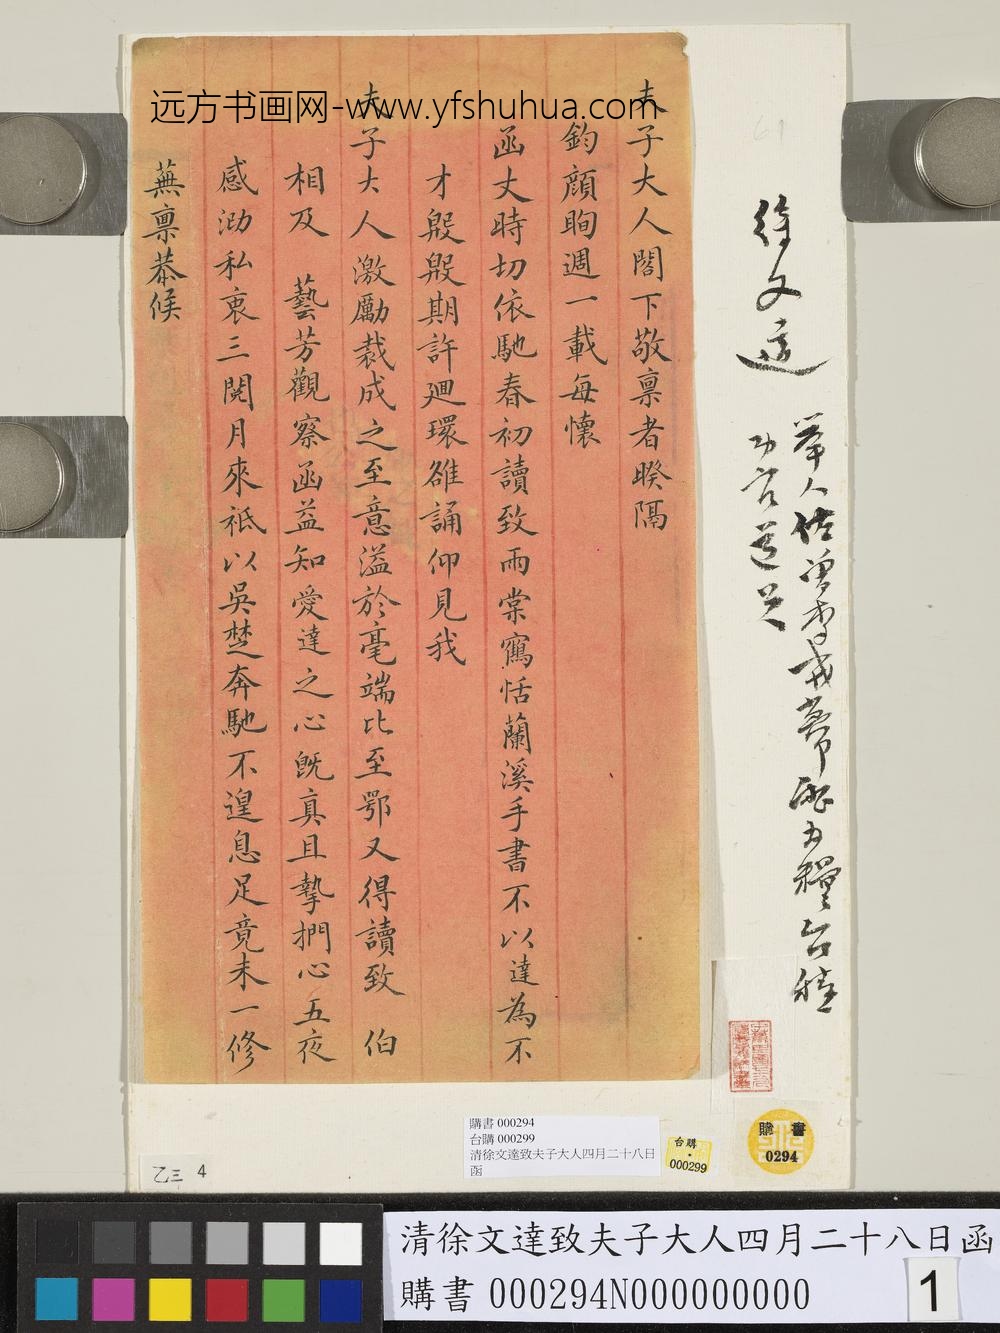 远方书画网-www.yfshuhua.com
夫子大人閣下敬禀者暌隔
鈞顏眴週一載每懷
函丈時切依馳春初讀致雨棠寫恬蘭溪手書不以達為不
才殷殷期許廻環雒誦仰見我
夫子大人激勵裁成之至意溢於毫端比至鄂又得讀致 伯
相及 藝芳觀察函益知愛達之心既真且摯捫心五夜
感泐私衷三閱月來祗以吳楚奔馳不遑息足竟未一修
蕪禀恭候
徐文達
舉人佐曾李戎幕
購書 000294
台購 000299
清徐文達致夫子大人四月二十八日
函
台購
000299
購書
0294
乙三 4
清徐文達致夫子大人四月二十八日函
購書 000294N000000000
1